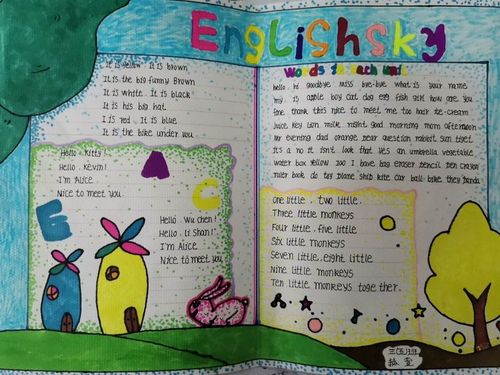 English sky
Words in each unit
It is yellow It is brown
It is the big funny Brown
It is white It is black
It is his big hat
I IS red It is blue
It is the bike under you
Hello, Kitty!
Hello, Kevin!
I'm Alice
Nice to meet you
A
C
E
Hello, Wu Chen!
Hello, Li Shan!
I'm Alice
Nice to meet you
hello hi goodbye miss bye-bye what is your name
my is apple boy cat dog egg fish girl how are you
fine thank this nice to meet me too hair ice-cream
juice key lion milk night good morning mom afternoon
evening dad orange pear question rabbit sun toy
it's a no it isn't look that yes an umbrella vegetable
water box yellow zoo I have bag eraser pencil pen crayon
ruler book do toy plane ship kite car ball bike they panda
one little, two little,
Three little monkeys
Four little, five little
Six little monkeys
Seven little, eight little
Nine little monkeys
Ten little monkeys together.